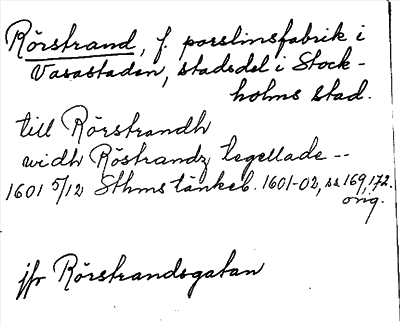 Rörstrand, f. porslinsfabrik i
Vasastaden, stadsdel i Stock-
holms stad.
till Rörstrandh
widh Röstrandz tegellade --
1601 5/12 Sthms tänkeb. 1601-02, ss 169, 172.
orig.
jfr Rörstrandsgatan